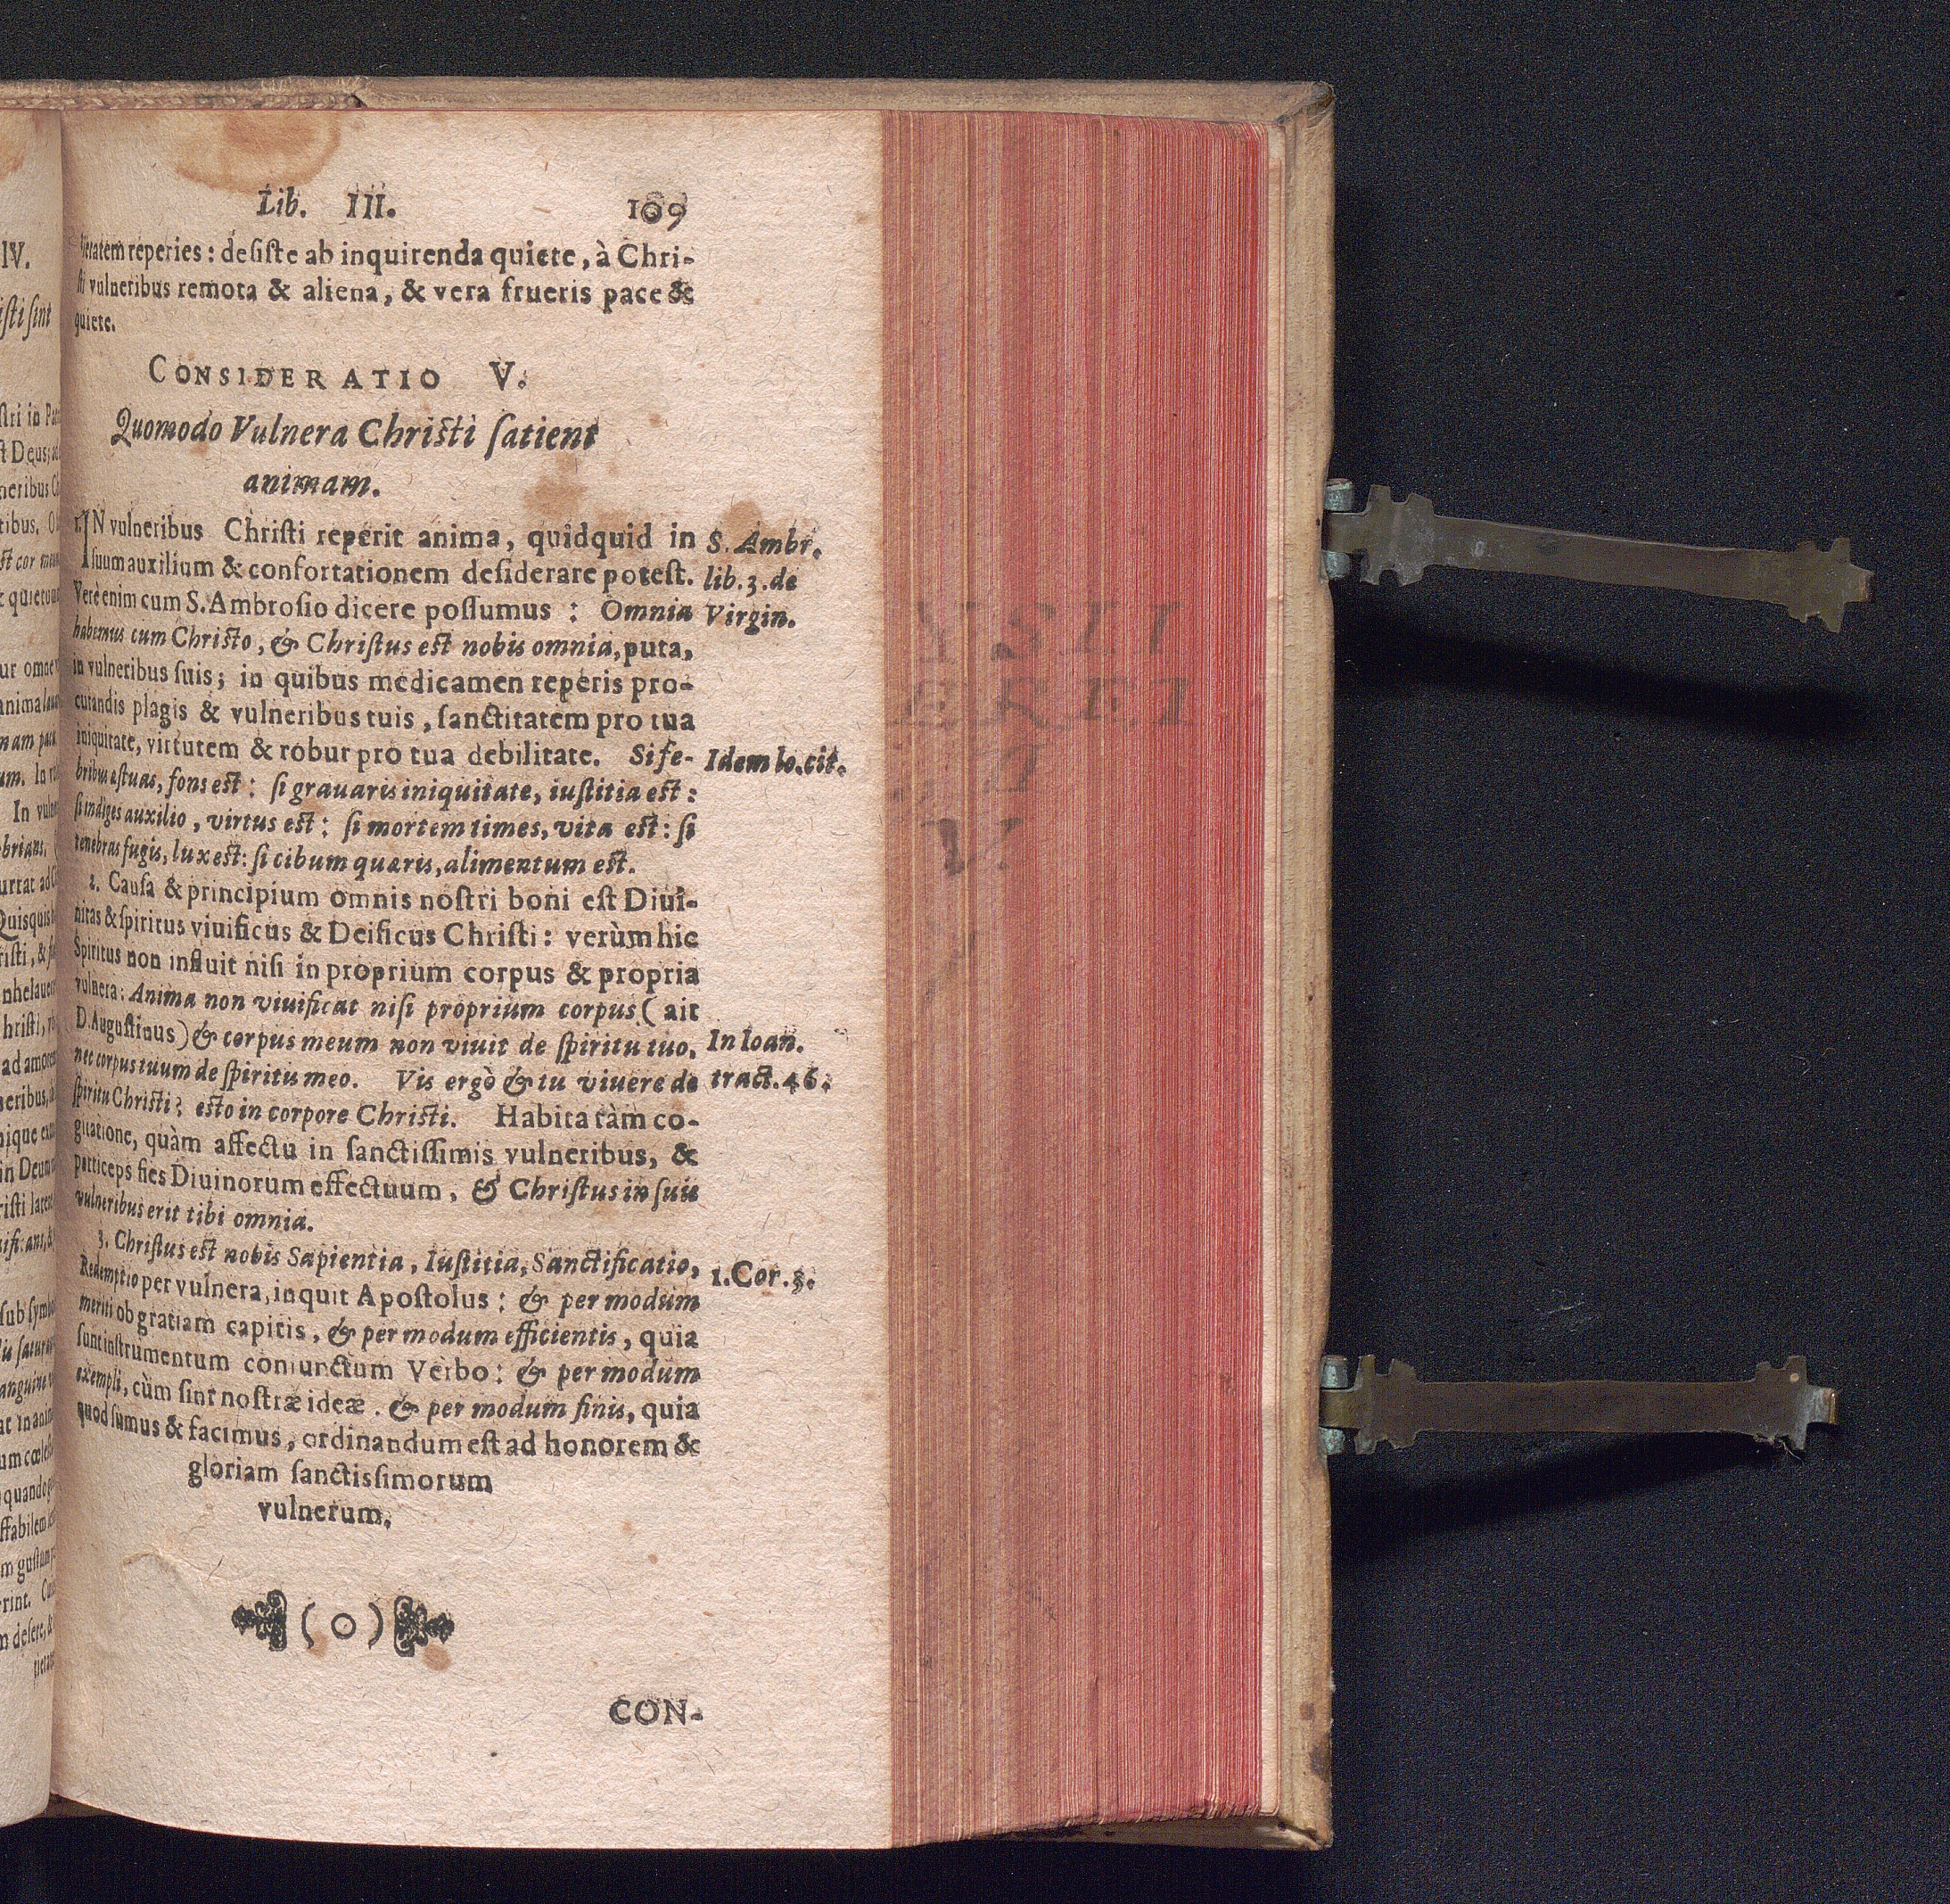 Lib. III. 109
reperies: desiste ab inquirenda quiete, à Chri-
sti vulneribus remota & aliena, & vera frueris pace &
quiete.
CONSIDERATIO V.
Quomodo Vulnera Christi satient
animam.
1. IN vulneribus Christi reperit anima, quidquid in
suum auxilium & confortationem desiderare potest.
Verè enim cum S. Ambrosio dicere possumus: Omnia
habemus cum Christo, & Christus est nobis omnia, puta,
in vulneribus suis; in quibus medicamen reperis pro-
curandis plagis & vulneribus tuis, sanctitatem pro tua
iniquitate, virtutem & robur pro tua debilitate. Si fe-
bribus æstuas, fons est: si grauaris iniquitate, iustitia est:
si indiges auxilio, virtus est: si mortem times, vita est: si
tenebras fugis, lux est: si cibum quæris, alimentum est.
2. Causa & principium omnis nostri boni est Diui-
nitas & spiritus viuificus & Deificus Christi: verùm hic
Spiritus non influit nisi in proprium corpus & propria
vulnera: Anima non viuificat nisi proprium corpus (ait
D. Augustinus) & corpus meum non viuit de spiritu tuo,
nec corpus tuum de spiritu meo. Vis ergò & tu viuere de
spiritu Christi? esto in corpore Christi. Habita tàm co-
gitatione, quàm affectu in sanctissimis vulneribus, &
particeps fies Diuinorum effectuum, & Christus in suis
vulneribus erit tibi omnia.
3. Christus est nobis Sapientia, Iustitia, Sanctificatio,
Redemptio per vulnera, inquit Apostolus: & per modum
meriti ob gratiam capitis, & per modum efficientis, quia
sunt instrumentum coniunctum Verbo: & per modum
exempli, cùm sint nostræ ideæ. & per modum finis, quia
quod sumus & facimus, ordinandum est ad honorem &
gloriam sanctissimorum
vulnerum.
(o)
CON-
S. Ambr.
lib. 3. de
Virgin.
Idem lo. cit.
In Ioan.
tract. 46.
1. Cor.